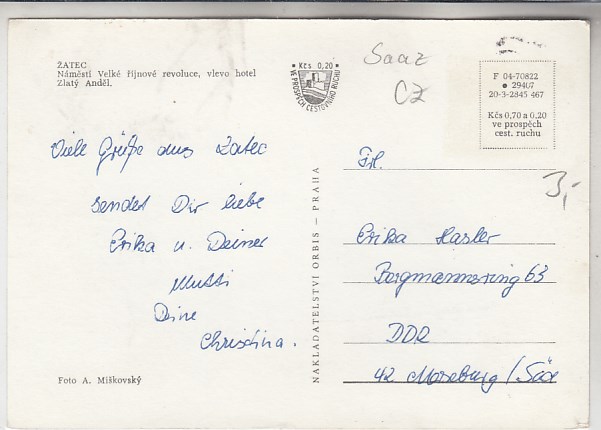 ŽATEC
Náměstí Velké říjnové revoluce, vlevo hotel
Zlatý Anděl.
Kčs 0,20
VE PROSPĚCH CESTOVNÍHO RUCHU
Saaz
CZ
F 04-70822
29407
20-3-2845 467
Kčs 0,70 a 0,20
ve prospěch
cest. ruchu
3,-
Viele Grüße aus Zatec
sendet Dir liebe
Erika u. Deiner
Mutti
Deine
Christina.
Foto A. Miškovský
NAKLADATELSTVÍ ORBIS — PRAHA
Frl.
Erika Hasler
Bergmannsring 63
DDR
42 Merseburg / Saa